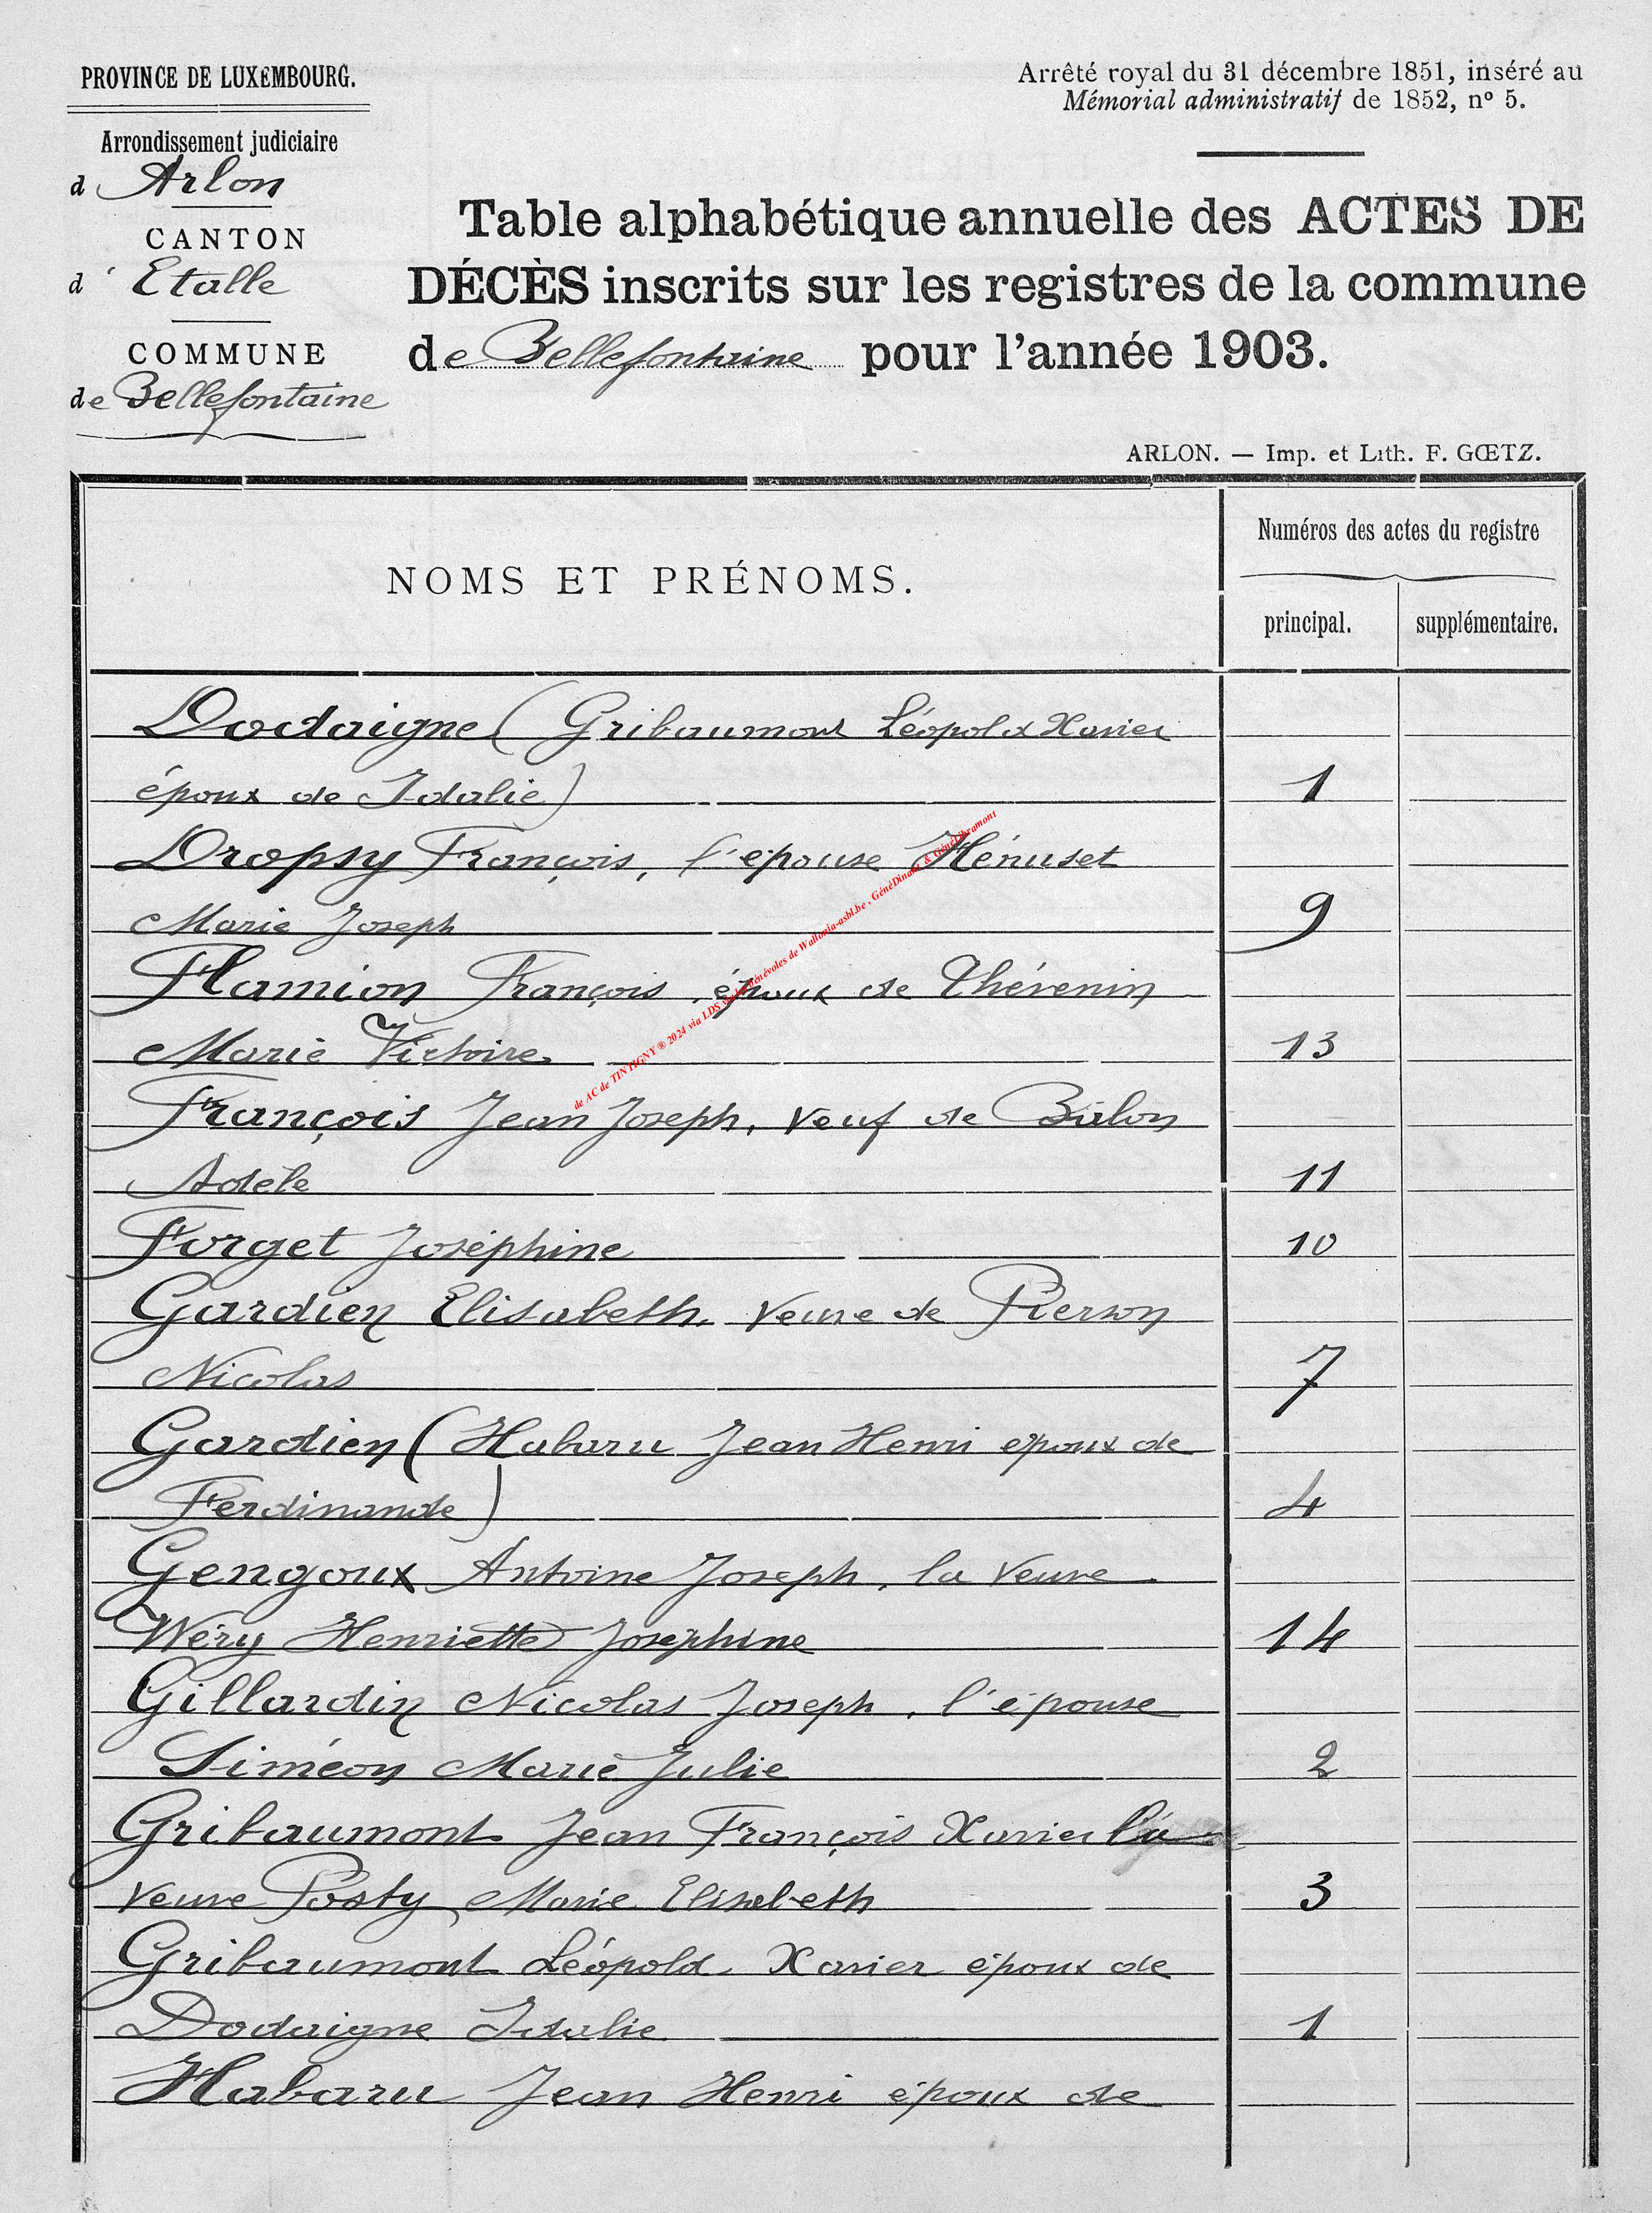 PROVINCE DE LUXEMBOURG.
Arrondissement judiciaire
d Arlon
CANTON
d' Etalle
COMMUNE
de Bellefontaine
Arrêté royal du 31 décembre 1851, inséré au
Mémorial administratif de 1852, nº 5.
Table alphabétique annuelle des ACTES DE
DÉCÈS inscrits sur les registres de la commune
de Bellefontaine pour l'année 1903.
ARLON. — Imp. et Lith. F. GŒTZ.
NOMS ET PRÉNOMS.
Numéros des actes du registre
principal. supplémentaire.
Dodaigne ( Gribaumont Léopold Xavier
époux de Idalie) 1
Dropsy François, l'épouse Hénuset
Marie Joseph 9
Flamion François, époux de Thévenin
Marie Victoire 13
François Jean Joseph, veuf de Bulon
Adèle 11
Forget Joséphine 10
Gardien Elisabeth, veuve de Pierson
Nicolas 7
Gardien ( Habaru Jean Henri époux de
Ferdinande ) 4
Gengoux Antoine Joseph, la veuve
Wéry Henriette Joséphine 14
Gillardin Nicolas Joseph, l'épouse
Siméon Marie Julie 2
Gribaumont Jean François Xavier la
veuve Posty Marie Elisabeth 3
Gribaumont Léopold Xavier époux de
Dodaigne Idalie 1
Habaru Jean Henri époux de
de AC de TINTIGNY ® 2024 via LDS bénévoles de Wallonia-asbl.be, GénéDinant & GénéLibramont